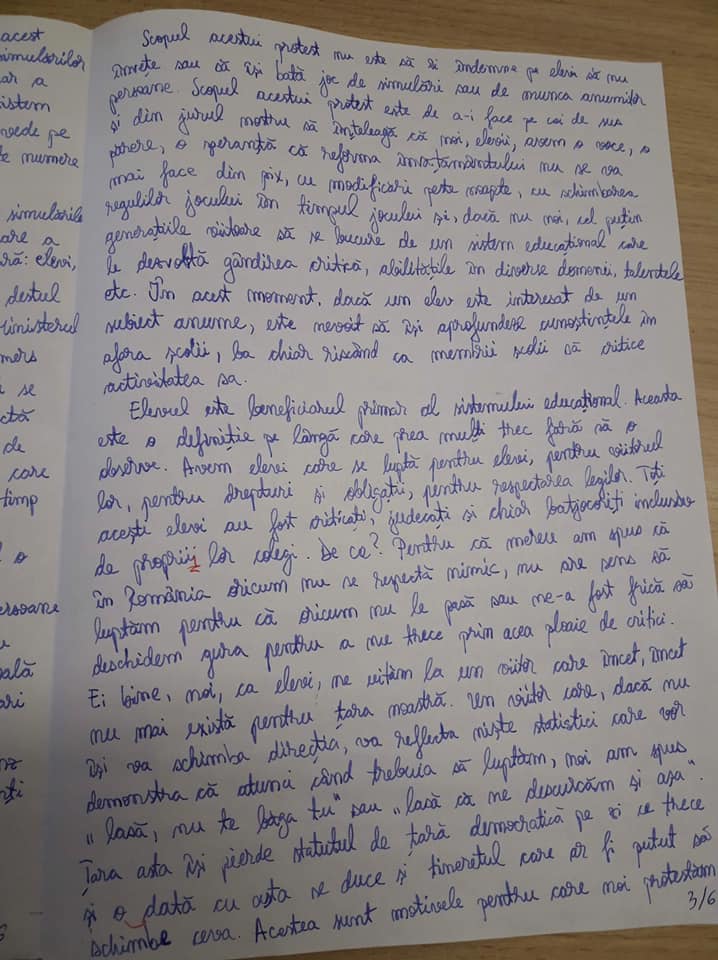 acest
simulărilor
ar a
istem
vede pe
te numere
simulările
are a
ră: elevi,
destul
Ministerul
mers
se
ctă
de
care
timp
o
ersoane
u
oală
ari
nz
nți
Scopul acestui protest nu este să îi îndemne pe elevi să nu
învețe sau că își bată joc de simulări sau de munca anumitor
persoane. Scopul acestui protest este de a-i face pe cei de sus
și din jurul nostru să înțeleagă că noi, elevii, avem o voce, o
părere, o speranță că reforma învățământului nu se va
mai face din pix, cu modificări peste noapte, cu schimbarea
regulilor jocului în timpul jocului și, dacă nu noi, cel puțin
generațiile viitoare să se bucure de un sistem educațional care
le dezvoltă gândirea critică, abilitățile în diverse domenii, talentele
etc. În acest moment, dacă un elev este interesat de un
subiect anume, este nevoit să își aprofundeze cunoștințele în
afara școlii, ba chiar riscând ca membrii școlii să critice
activitatea sa.
Elevul este beneficiarul primar al sistemului educațional. Aceasta
este o definiție pe lângă care prea mulți trec fără să o
observe. Avem elevi care se luptă pentru elevi, pentru viitorul
lor, pentru drepturi și obligații, pentru respectarea legilor. Toți
acești elevi au fost criticați, judecați și chiar batjocoriți inclusiv
de propriii lor colegi. De ce? Pentru că mereu am spus că
în România oricum nu se respectă nimic, nu are sens să
luptăm pentru că oricum nu le pasă sau ne-a fost frică să
deschidem gura pentru a nu trece prin acea ploaie de critici.
Ei bine, noi, ca elevi, ne uităm la un viitor care încet, încet
nu mai există pentru țara noastră. Un viitor care, dacă nu
își va schimba direcția, va reflecta niște statistici care vor
demonstra că atunci când trebuia să luptăm, noi am spus
„lasă, nu te băga tu” sau „lasă că ne descurcăm și așa”.
Țara asta își pierde statutul de țară democratică pe zi ce trece
și o dată cu asta se duce și tineretul care ar fi putut să
schimbe ceva. Acestea sunt motivele pentru care noi protestăm
3/6